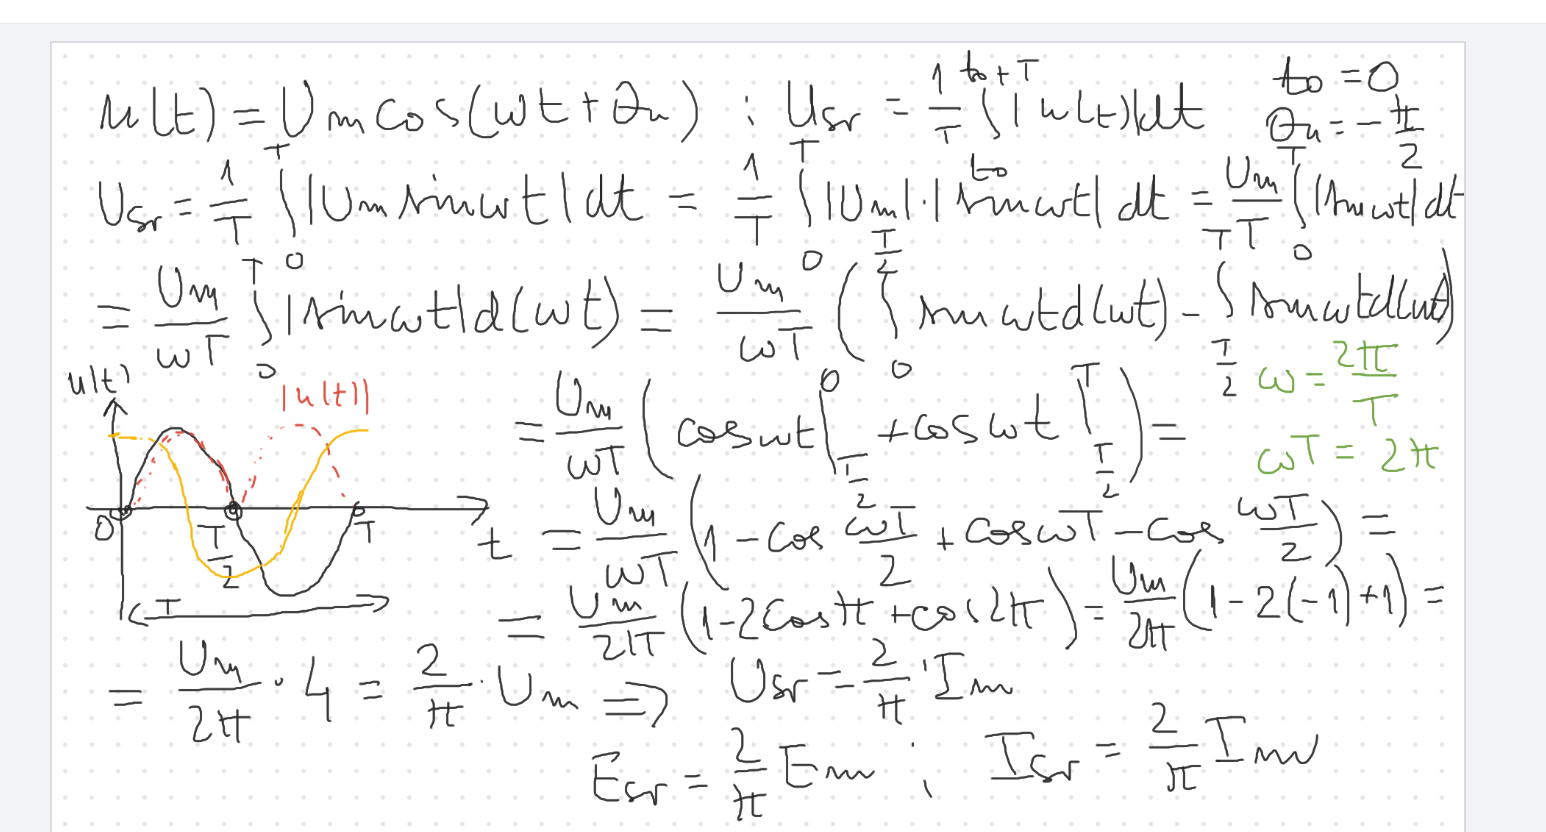 u(t) = U_m cos(ωt + θ_u) ; U_sr = 1/T ∫_{t_0}^{t_0+T} |u(t)|dt t_0 = 0
θ_u = -π/2
U_sr = 1/T ∫_0^T |U_m sin ωt| dt = 1/T ∫_0^T |U_m|·|sin ωt| dt = U_m/T ∫_0^T |sin ωt| dt
= U_m/ωT ∫_0^T |sin ωt| d(ωt) = U_m/ωT ( ∫_0^{T/2} sin ωt d(ωt) - ∫_{T/2}^T sin ωt d(ωt) )
ω = 2π/T
ωT = 2π
u(t)
|u(t)|
0
T/2
T
t
T
= U_m/ωT ( cos ωt |_{T/2}^0 + cos ωt |_{T/2}^T ) =
= U_m/ωT ( 1 - cos ωT/2 + cos ωT - cos ωT/2 ) =
= U_m/2π ( 1 - 2cos π + cos 2π ) = U_m/2π ( 1 - 2(-1) + 1 ) =
= U_m/2π · 4 = 2/π · U_m ⇒ U_sr = 2/π · I_m
E_sr = 2/π E_m ; I_sr = 2/π I_m